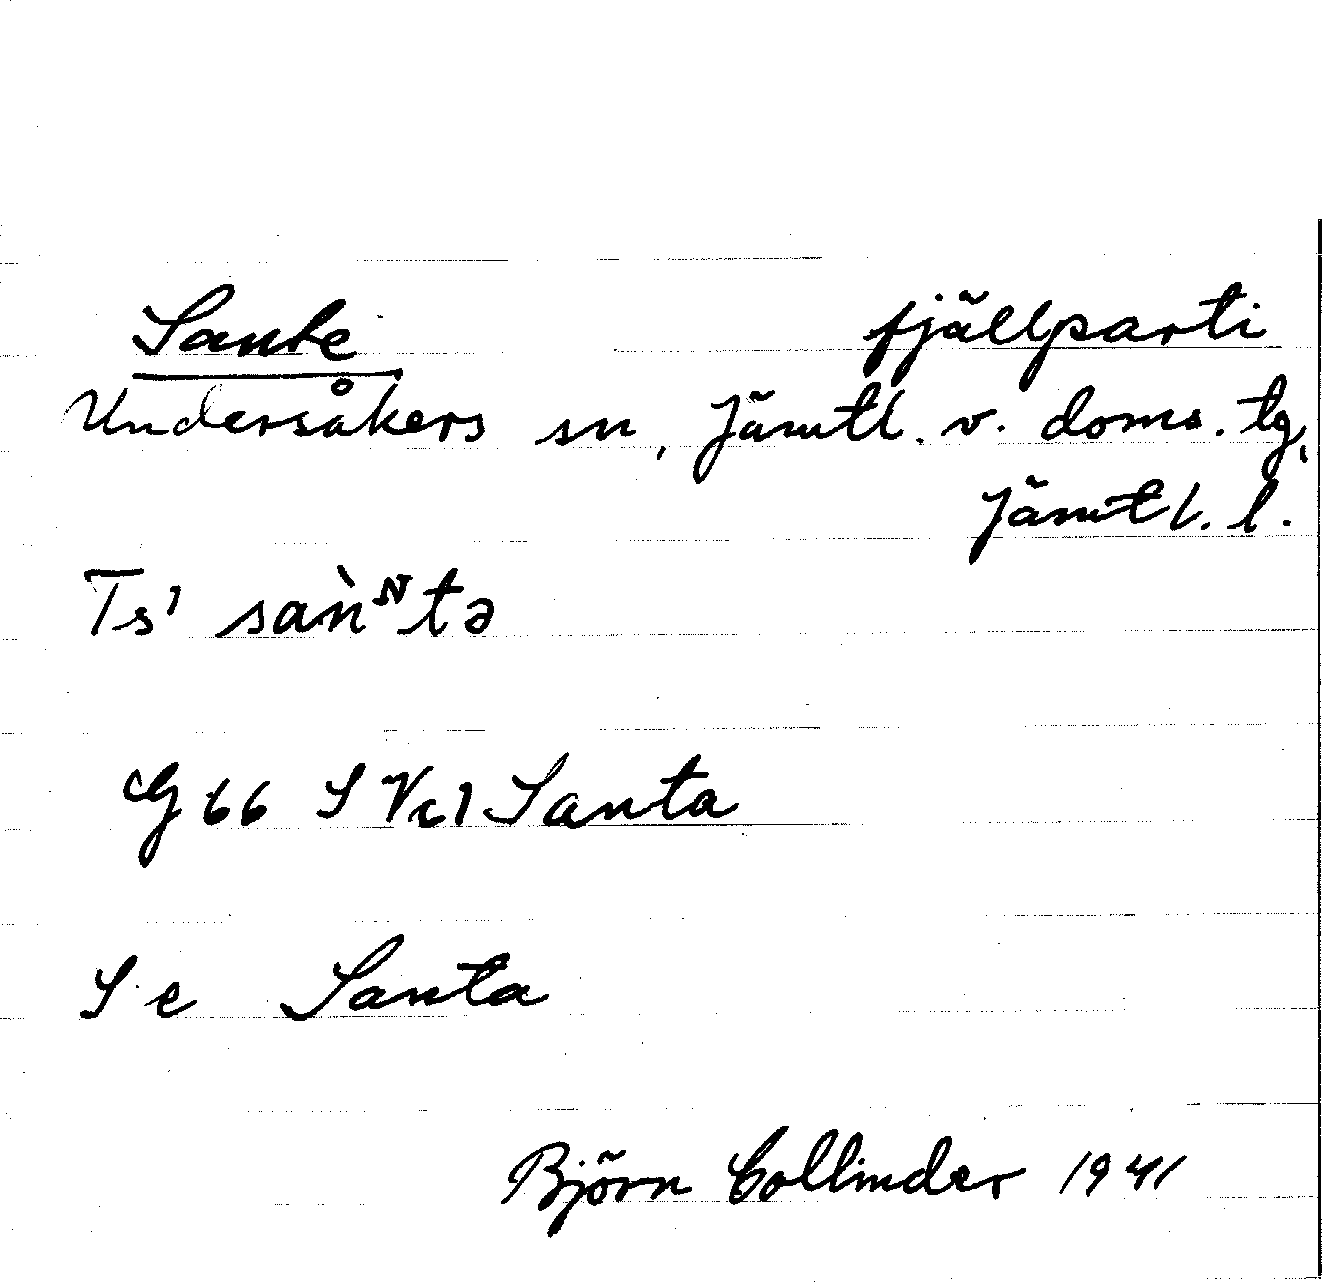 Sante fjällparti
Undersåkers sn, Jämtl. v. doms. tg,
Jämtl. l.
Ts' sàǹᴺtə
G 66 S Vcl Santa
S e Santa
Björn Collinder 1941